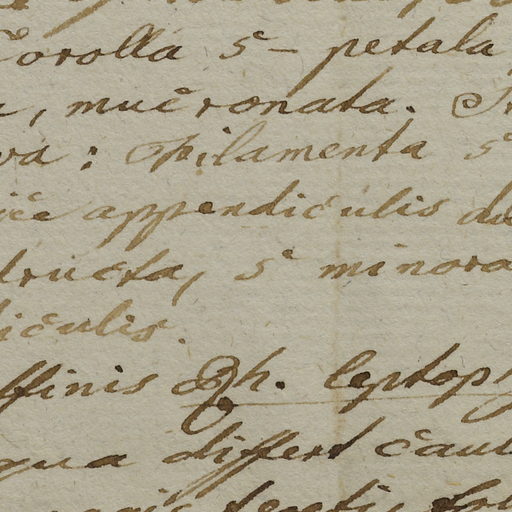 Corolla 5-petala
, mucronata.
va: Filamenta 5
appendiculis
structa, 5 minora
diculis.
ffinis Ph. leptoph
qua differt caul